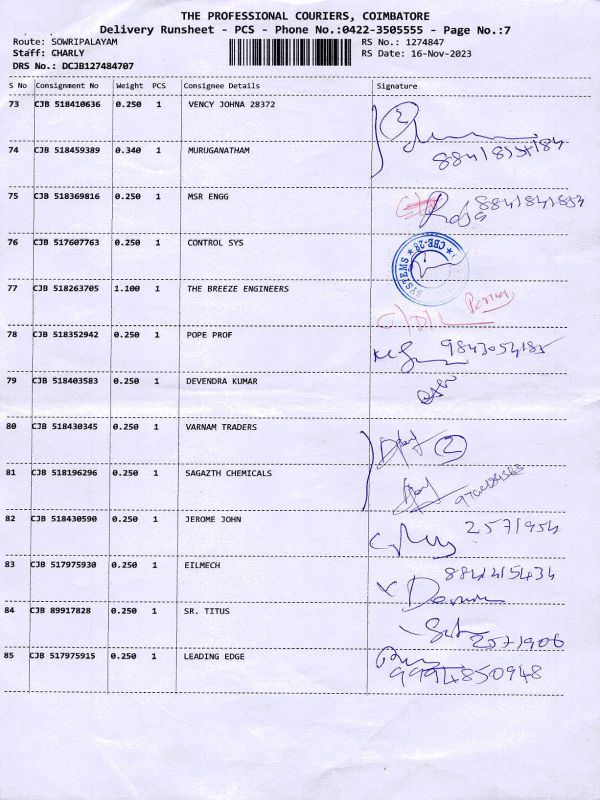 THE PROFESSIONAL COURIERS, COIMBATORE
Delivery Runsheet - PCS - Phone No.:0422-3505555 - Page No.:7
Route: SOWRIPALAYAM RS No.: 1274847
Staff: CHARLY RS Date: 16-Nov-2023
DRS No.: DCJB127484707
S No Consignment No Weight PCS Consignee Details Signature
73 CJB 518410636 0.250 1 VENCY JOHNA 28372
2
74 CJB 518459389 0.340 1 MURUGANATHAM
75 CJB 518369816 0.250 1 MSR ENGG
76 CJB 517607763 0.250 1 CONTROL SYS
SYSTEMS ★ CBE-28 ★
77 CJB 518263705 1.100 1 THE BREEZE ENGINEERS
78 CJB 518352942 0.250 1 POPE PROF
9843054185
79 CJB 518403583 0.250 1 DEVENDRA KUMAR
80 CJB 518430345 0.250 1 VARNAM TRADERS
2
81 CJB 518196296 0.250 1 SAGAZTH CHEMICALS
82 CJB 518430590 0.250 1 JEROME JOHN
2571954
83 CJB 517975930 0.250 1 EILMECH
884415434
84 CJB 89917828 0.250 1 SR. TITUS
2571906
85 CJB 517975915 0.250 1 LEADING EDGE
9994850948